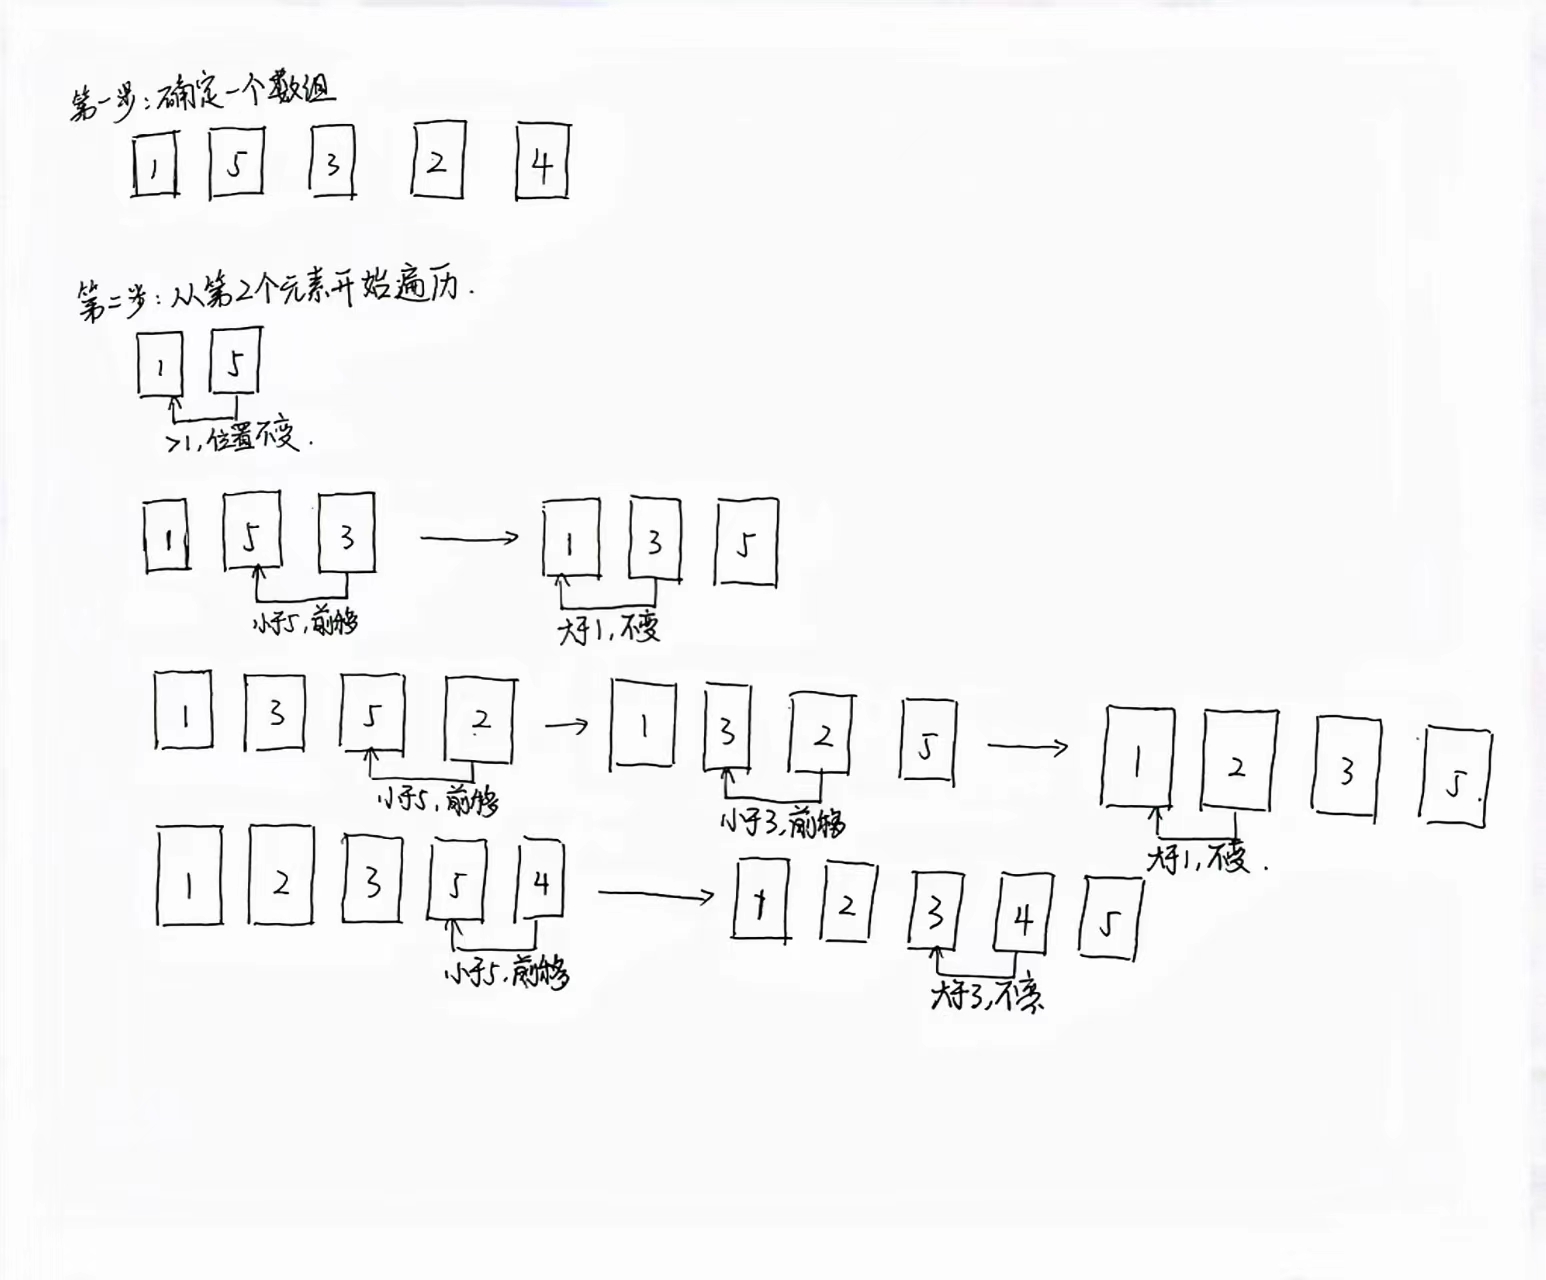 第一步:确定一个数组
1 5 3 2 4
第二步:从第2个元素开始遍历.
1 5
>1,位置不变.
1 5 3 1 3 5
小于5,前移 大于1,不变
1 3 5 2 1 3 2 5 1 2 3 5
小于5,前移 小于3,前移 大于1,不变.
1 2 3 5 4 1 2 3 4 5
小于5,前移 大于3,不变